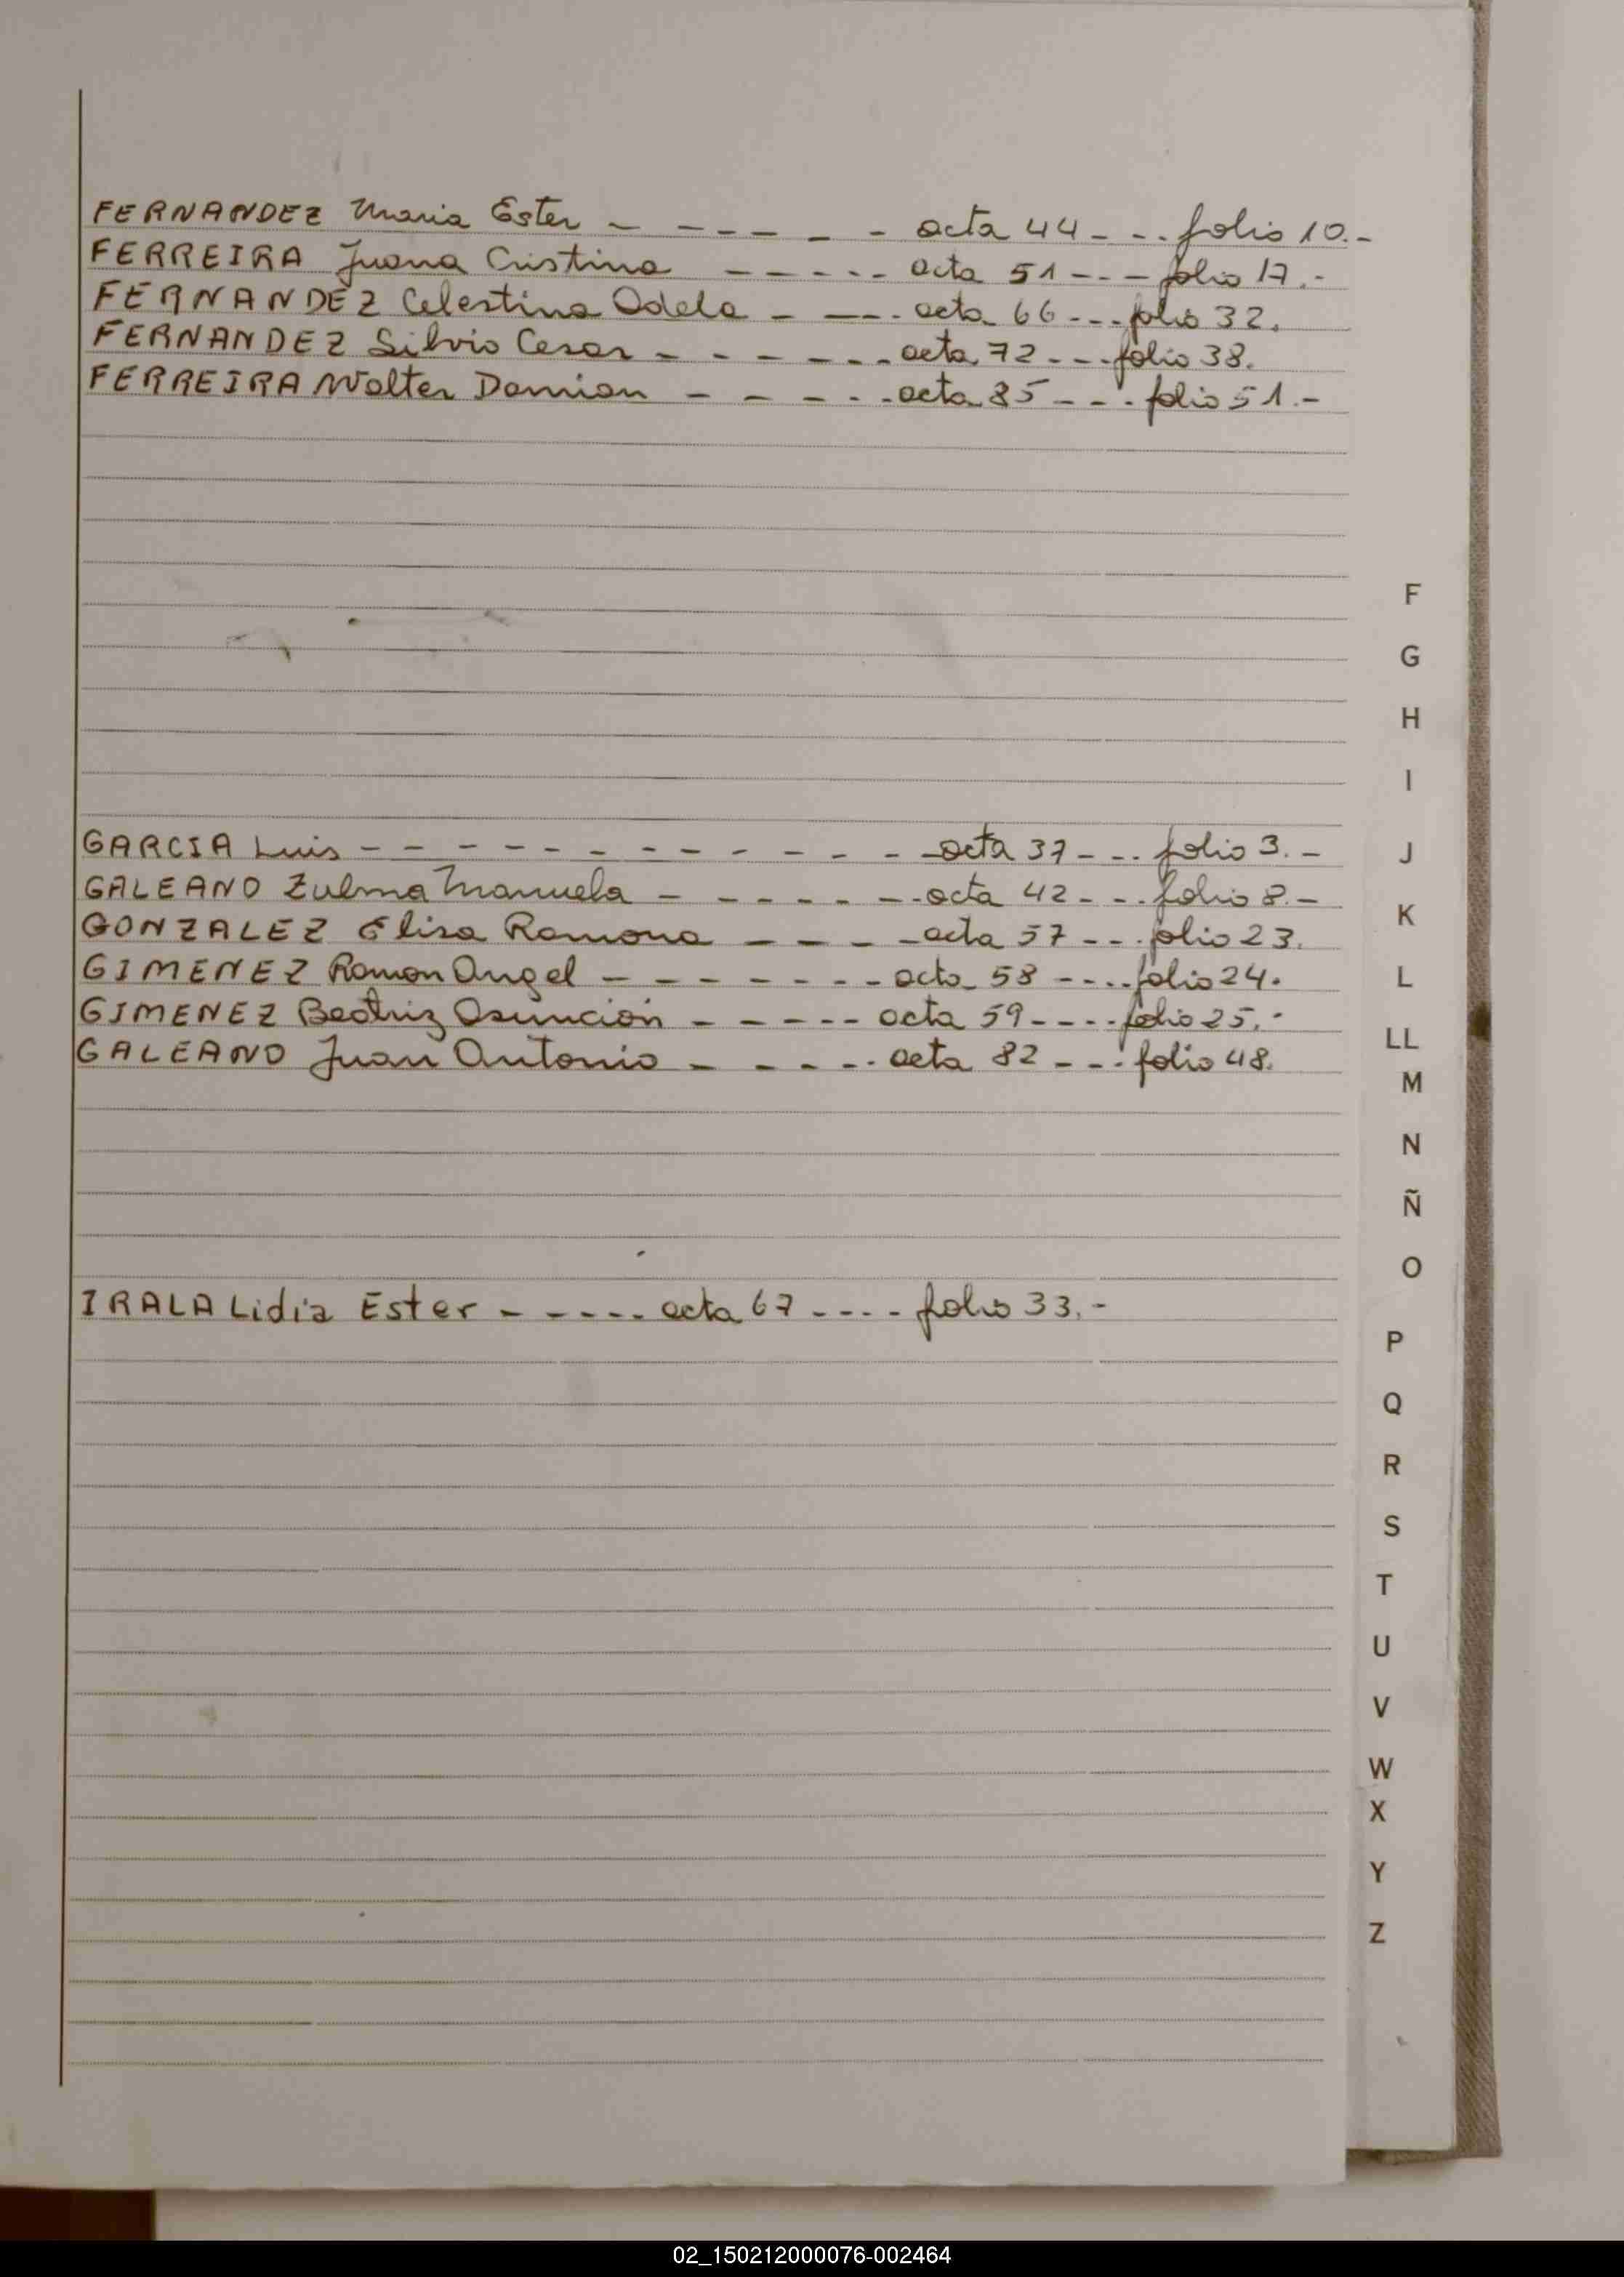 FERNANDEZ Maria Ester - - - - - - - acta 44 - - - folio 10.-
FERREIRA Juana Cristina - - - - - acta 51 - - - folio 17.-
FERNANDEZ Celestina Adela - - - - acta 66 - - - folio 32.
FERNANDEZ Silvio Cesar - - - - - - - acta 72 - - - folio 38.
FERREIRA Walter Damian - - - - - - acta 85 - - - folio 51.-
GARCIA Luis - - - - - - - - - - - - - - acta 37 - - - folio 3.-
GALEANO Zulma Manuela - - - - - - - acta 42 - - - folio 8.-
GONZALEZ Elisa Ramona - - - - - acta 57 - - - folio 23.
GIMENEZ Ramon Angel - - - - - - - - acta 58 - - - - folio 24.
GIMENEZ Beatriz Asunción - - - - - - acta 59 - - - - folio 25.-
GALEANO Juan Antonio - - - - - - acta 82 - - - folio 48.
IRALA Lidia Ester - - - - - acta 67 - - - - folio 33.-
F
G
H
I
J
K
L
LL
M
N
Ñ
O
P
Q
R
S
T
U
V
W
X
Y
Z
02_150212000076-002464